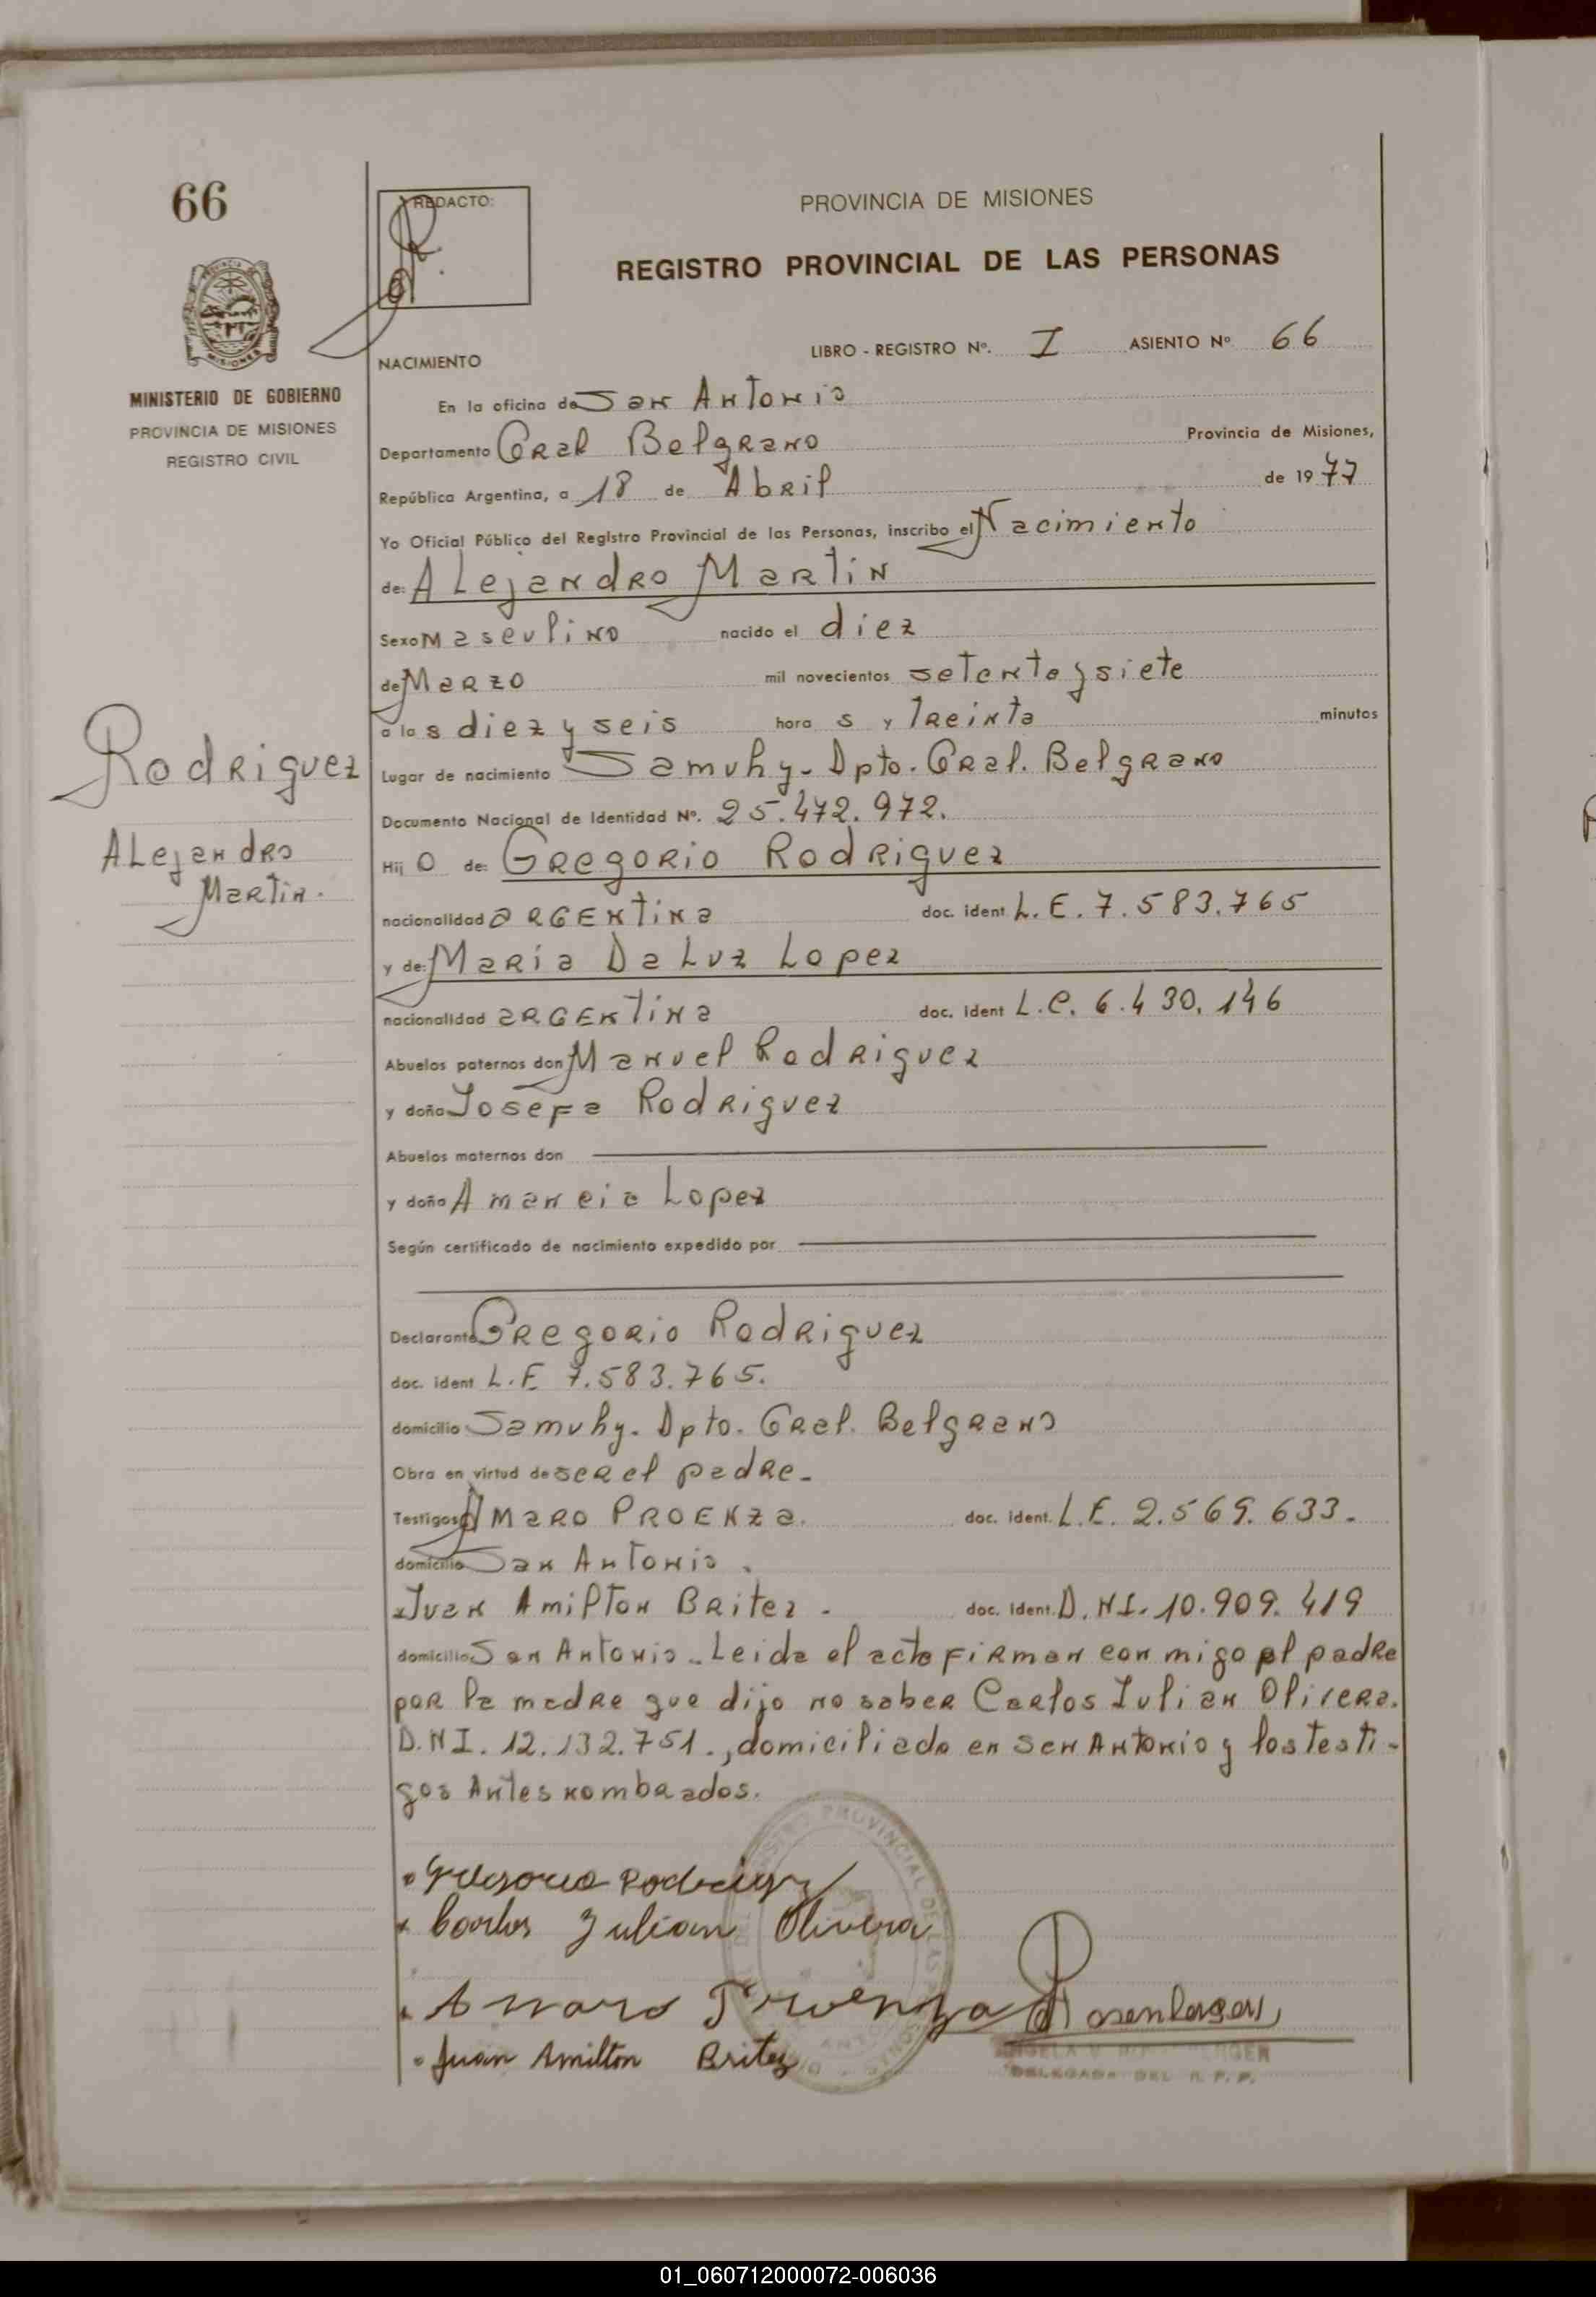 66
REDACTO:
PROVINCIA DE MISIONES
REGISTRO PROVINCIAL DE LAS PERSONAS
LIBRO - REGISTRO Nº. I ASIENTO Nº 66
NACIMIENTO
MINISTERIO DE GOBIERNO
PROVINCIA DE MISIONES
REGISTRO CIVIL
En la oficina de San Antonio
Departamento Gral Belgrano Provincia de Misiones,
República Argentina, a 18 de Abril de 1977
Yo Oficial Público del Registro Provincial de las Personas, inscribo el Nacimiento
de: Alejandro Martin
Sexo Masculino nacido el diez
de Marzo mil novecientos setenta y siete
a las diez y seis hora s y Treinta minutos
Rodriguez
Alejandro
Martin.
Lugar de nacimiento Samuhy. Dpto. Gral. Belgrano
Documento Nacional de Identidad Nº. 25.472.972.
Hij o de: Gregorio Rodriguez
nacionalidad argentina doc. ident L.E. 7.583.765
y de: María Da Luz Lopez
nacionalidad argentina doc. ident L.C. 6.430.146
Abuelos paternos don Manuel Rodriguez
y doña Josefa Rodriguez
Abuelos maternos don
y doña Amancia Lopez
Según certificado de nacimiento expedido por
Declarante Gregorio Rodriguez
doc. ident L.E 7.583.765.
domicilio Samuhy. Dpto. Gral. Belgrano
Obra en virtud de ser el padre-
Testigos Amaro Proenza. doc. ident. L.E. 2.569.633.
domicilio San Antonio.
Juan Amilton Britez. doc. ident. D.NI. 10.909.419
domicilio San Antonio. Leida el acta firman con migo el padre
por la madre que dijo no saber Carlos Julian Olivera.
D.NI. 12.132.751., domiciliado en San Antonio y los testi-
gos Antes nombrados.
Gregorio Rodriguez
Carlos Julian Olivera
Amaro Proenza Rosenberger
Juan Amilton Britez
DELEGADA DEL R.P.P.
01_060712000072-006036